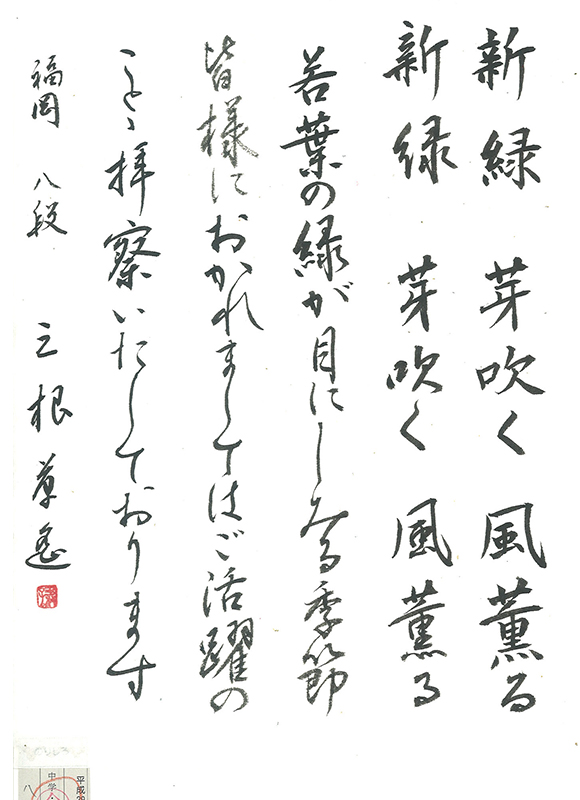 新緑 芽吹く 風薫る
新緑 芽吹く 風薫る
若葉の緑が目にしみる季節
皆様におかれましてはご活躍の
こと、拝察いたしております
福岡 八段 立根
平成
中学
八